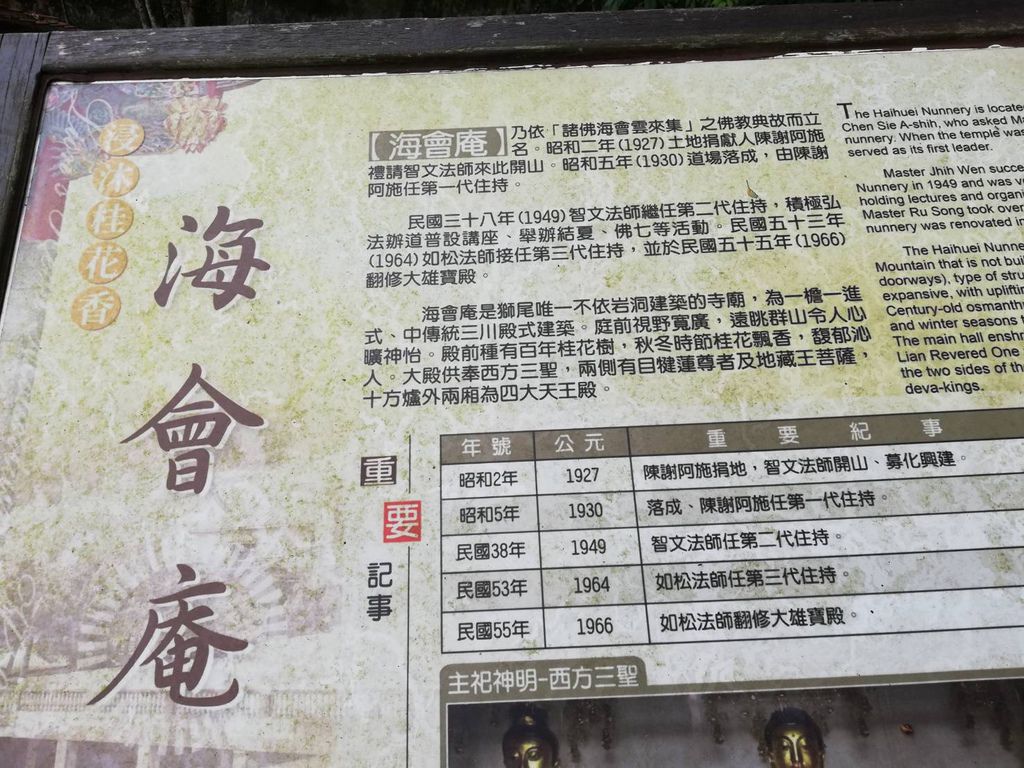 浸沐桂花香
海會庵
【海會庵】乃依「諸佛海會雲來集」之佛教典故而立
名。昭和二年(1927)土地捐獻人陳謝阿施
禮請智文法師來此開山。昭和五年(1930)道場落成，由陳謝
阿施任第一代住持。
民國三十八年(1949)智文法師繼任第二代住持，積極弘
法辦道普設講座、舉辦結夏、佛七等活動。民國五十三年
(1964)如松法師接任第三代住持，並於民國五十五年(1966)
翻修大雄寶殿。
海會庵是獅尾唯一不依岩洞建築的寺廟，為一檐一進
式、中傳統三川殿式建築。庭前視野寬廣，遠眺群山令人心
曠神怡。殿前種有百年桂花樹，秋冬時節桂花飄香，馥郁沁
人。大殿供奉西方三聖，兩側有目犍蓮尊者及地藏王菩薩，
十方爐外兩廂為四大天王殿。
The Haihuei Nunnery is locate
Chen Sie A-shih, who asked Ma
nunnery. When the temple was
served as its first leader.
Master Jhih Wen succe
Nunnery in 1949 and was v
holding lectures and organi
Master Ru Song took over
nunnery was renovated in
The Haihuei Nunne
Mountain that is not bui
doorways), type of stru
expansive, with upliftin
Century-old osmanth
and winter seasons t
The main hall enshr
Lian Revered One
the two sides of the
deva-kings.
重要記事
年號 公元 重要紀事
昭和2年 1927 陳謝阿施捐地，智文法師開山、募化興建。
昭和5年 1930 落成、陳謝阿施任第一代住持。
民國38年 1949 智文法師任第二代住持。
民國53年 1964 如松法師任第三代住持。
民國55年 1966 如松法師翻修大雄寶殿。
主祀神明-西方三聖